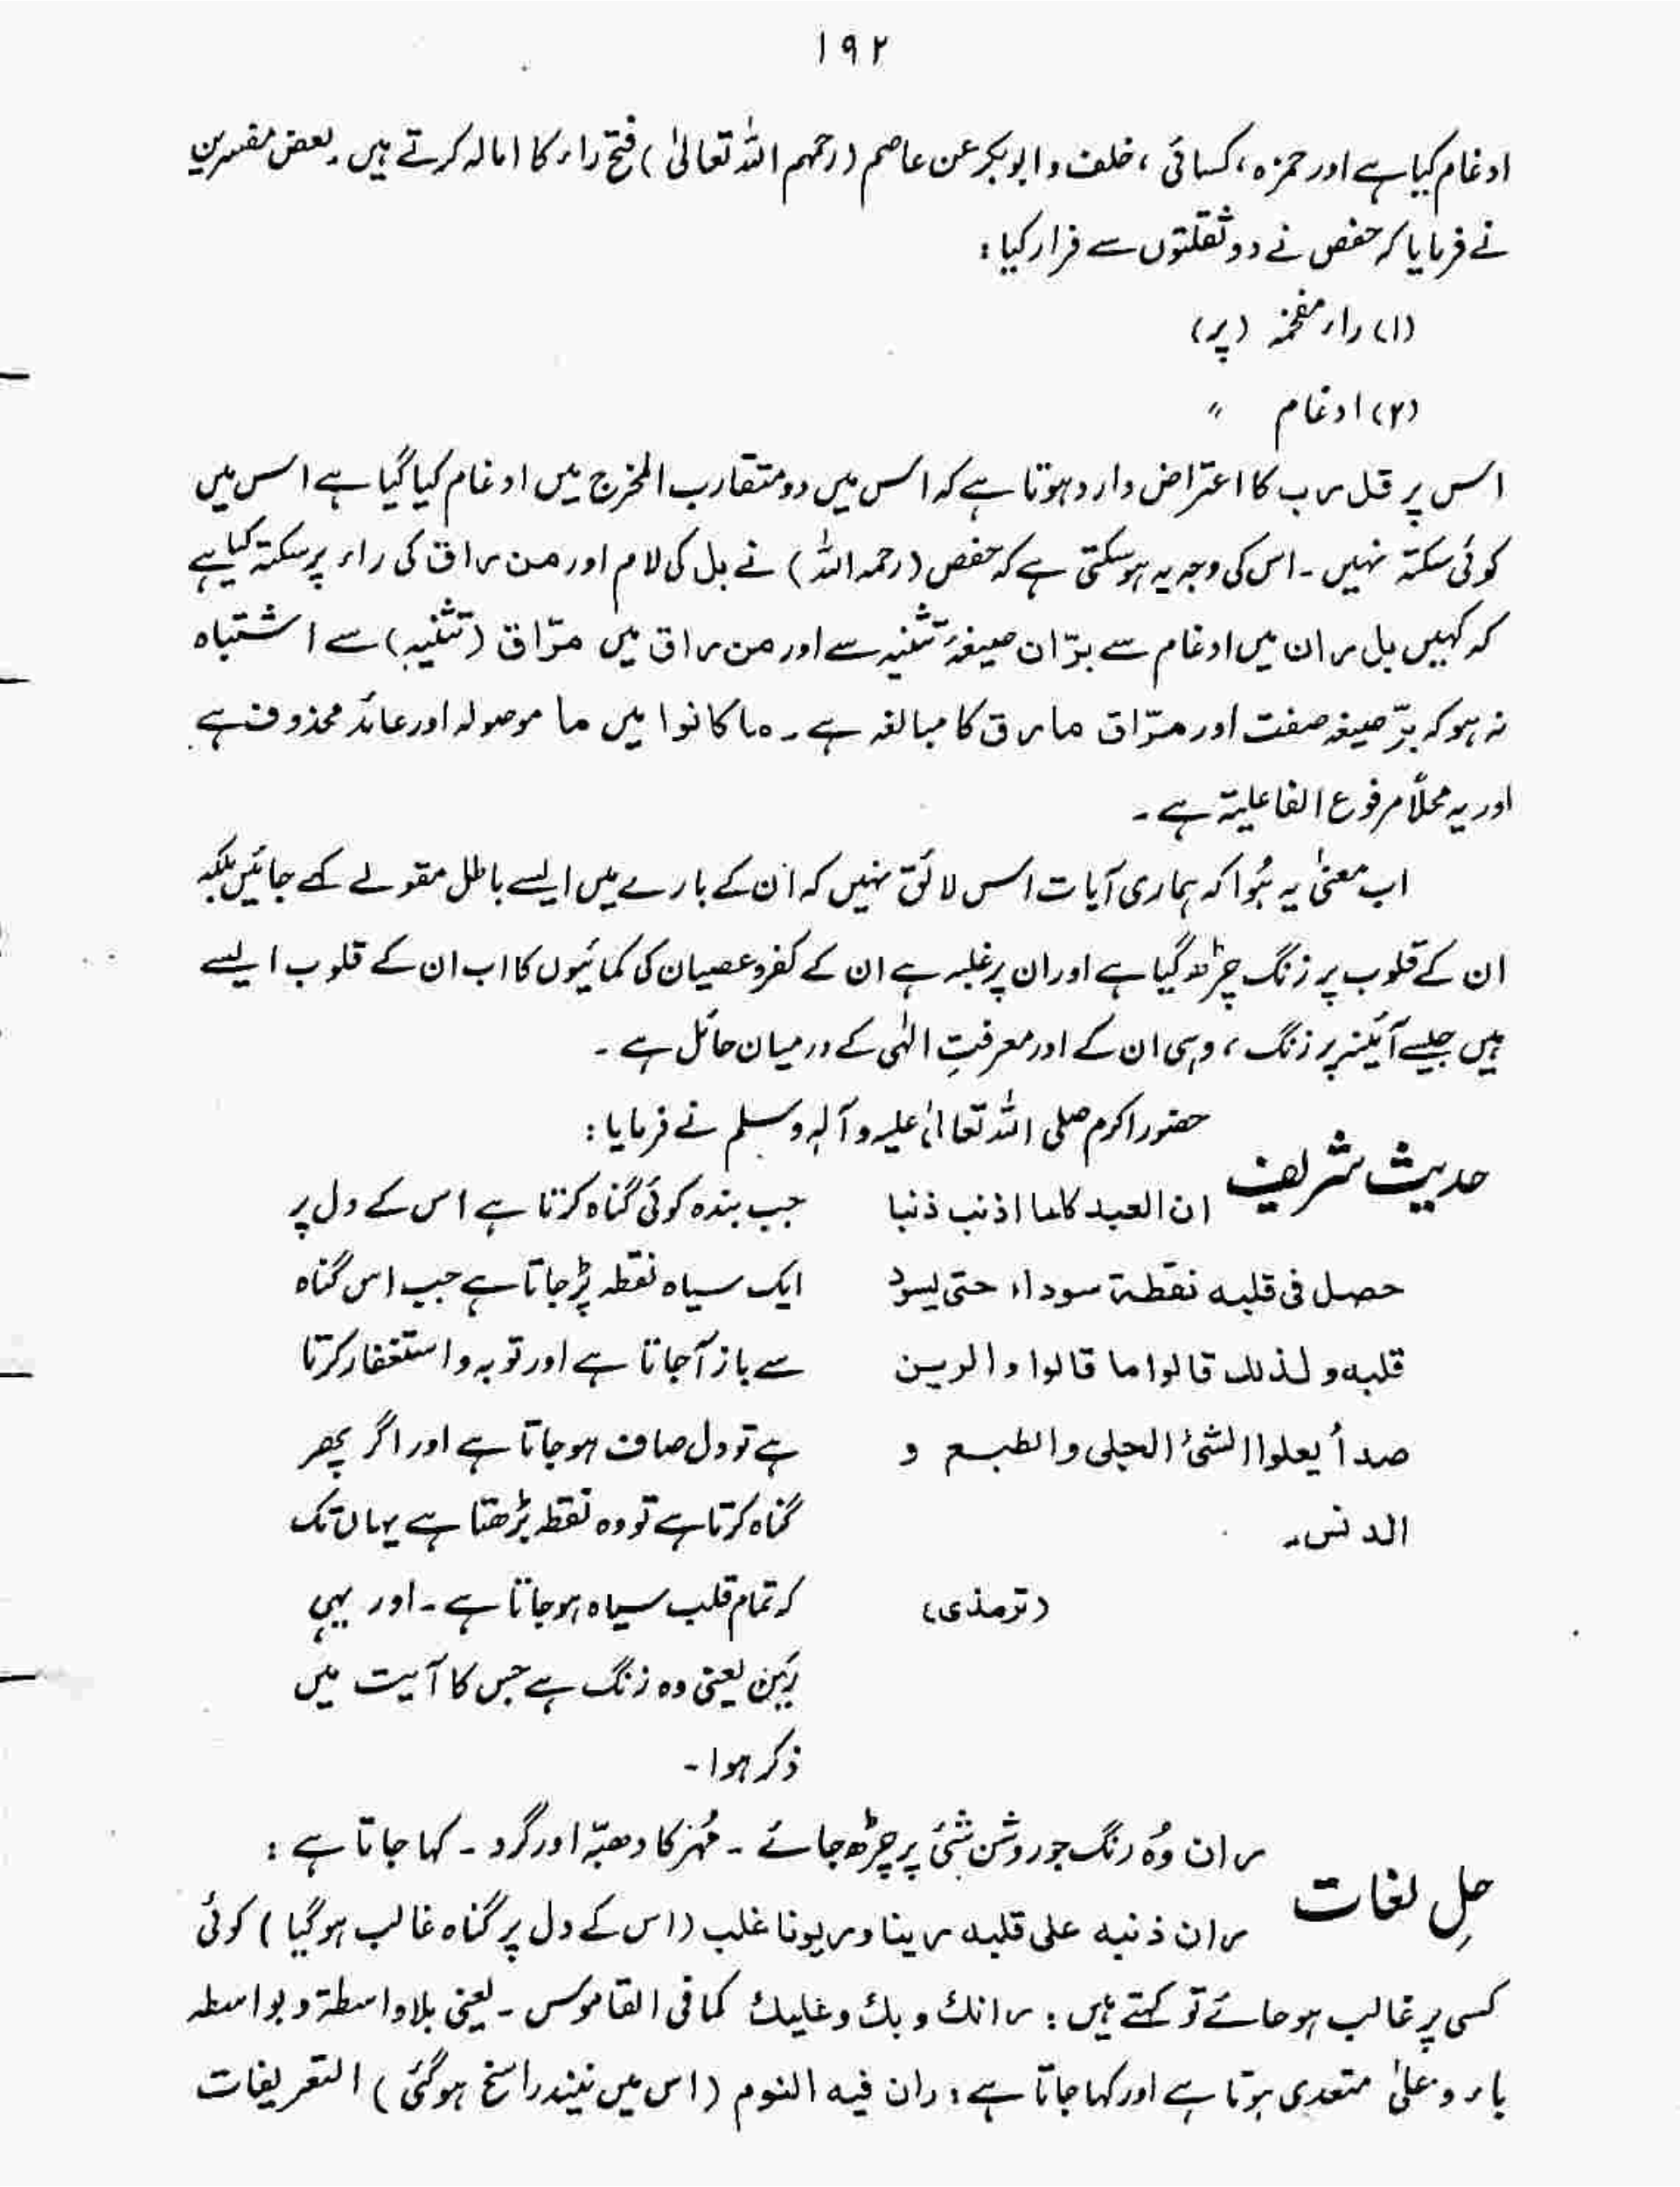 ۱۹۲
ادغام کیا ہے اور حمزہ، کسائی، خلف و ابوبکر عن عاصم (رحمہم اللہ تعالیٰ) فتح راء کا امالہ کرتے ہیں۔ بعض مفسرین
نے فرمایا کہ حفص نے دو ثقلتوں سے فرار کیا:
(۱) راء مفخمہ (پر)
(۲) ادغام 〃
اس پر قل رب کا اعتراض وارد ہوتا ہے کہ اس میں دو متقارب المخرج میں ادغام کیا گیا ہے اس میں
کوئی سکتہ نہیں۔ اس کی وجہ یہ ہو سکتی ہے کہ حفص (رحمہ اللہ) نے بل کی لام اور من راق کی راء پر سکتہ کیا ہے
کہ کہیں بل ران میں ادغام سے برّان صیغۂ تثنیہ سے اور من راق میں مرّاق (تثنیہ) سے اشتباہ
نہ ہو کہ برّ صیغہ صفت اور مرّاق مارق کا مبالغہ ہے۔ ما کانوا میں ما موصولہ اور عائد محذوف ہے
اور یہ محلاً مرفوع الفاعلیۃ ہے۔
اب معنیٰ یہ ہُوا کہ ہماری آیات اس لائق نہیں کہ ان کے بارے میں ایسے باطل مقولے کہے جائیں بلکہ
ان کے قلوب پر زنگ چڑھ گیا ہے اور ان پر غلبہ ہے ان کے کفر و عصیان کی کمائیوں کا اب ان کے قلوب ایسے
ہیں جیسے آئینہ پر زنگ، وہی ان کے اور معرفتِ الٰہی کے درمیان حائل ہے۔
حضور اکرم صلی اللہ تعالیٰ علیہ وآلہ وسلم نے فرمایا:
حدیث شریف
ان العبد کلما اذنب ذنبا
حصل فی قلبہ نقطۃ سوداء حتی یسودّ
قلبہ و لذلک قالوا ما قالوا والرین
صدأ یعلوا الشئ الجلی والطبع و
الدنس۔
(ترمذی)
جب بندہ کوئی گناہ کرتا ہے اس کے دل پر
ایک سیاہ نقطہ پڑجاتا ہے جب اس گناہ
سے باز آجاتا ہے اور توبہ و استغفار کرتا
ہے تو دل صاف ہوجاتا ہے اور اگر پھر
گناہ کرتا ہے تو وہ نقطہ بڑھتا ہے یہاں تک
کہ تمام قلب سیاہ ہوجاتا ہے۔ اور یہی
رَین یعنی وہ زنگ ہے جس کا آیت میں
ذکر ہوا۔
حلِ لغات
ران وُہ رنگ جو روشن شئ پر چڑھ جائے۔ مُہر کا دھبّہ اور گرد۔ کہا جاتا ہے:
ران ذنبہ علی قلبہ رینا وریونا غلب (اس کے دل پر گناہ غالب ہوگیا) کوئی
کسی پر غالب ہوجائے تو کہتے ہیں: رانک و بک و علیک کما فی القاموس۔ یعنی بلا واسطۃ و بواسطہ
باء و علیٰ متعدی ہوتا ہے اور کہا جاتا ہے: ران فیہ النوم (اس میں نیند راسخ ہوگئی) التعریفات